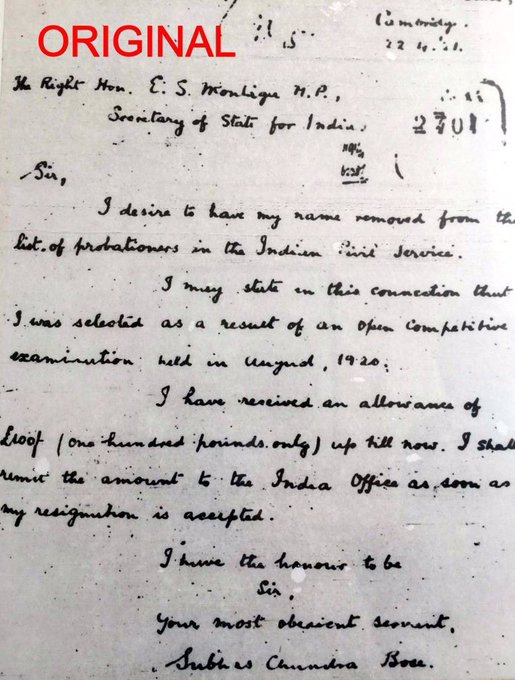 ORIGINAL
Cambridge.
22.4.21.
The Right Hon. E. S. Montagu M.P.,
Secretary of State for India.
2701
Sir,
I desire to have my name removed from the
list of probationers in the Indian Civil Service.
I may state in this connection that
I was selected as a result of an open competitive
examination held in August, 1920.
I have received an allowance of
£100/ (one hundred pounds only) up till now. I shall
remit the amount to the India Office as soon as
my resignation is accepted.
I have the honour to be
Sir,
Your most obedient servant,
Subhas Chandra Bose.